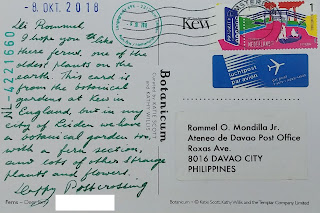 - 8. OKT. 2018
Kew
1
NEDERLAND
NL-4221660
Hi Rommel,
I hope you like
these ferns, one of the
oldest plants on the
earth. This card is
from the botanical
gardens at Kew in
England, but in my
city of Leiden we have a
botanical garden too,
with a fern section,
and lots of other strange
plants and flowers.
Happy Postcrossing
Botanicum
luchtpost
par avion
Rommel O. Mondilla Jr.
Ateneo de Davao Post Office
Roxas Ave.
8016 DAVAO CITY
PHILIPPINES
Botanicum — © Katie Scott, Kathy Willis and the Templar Company Limited